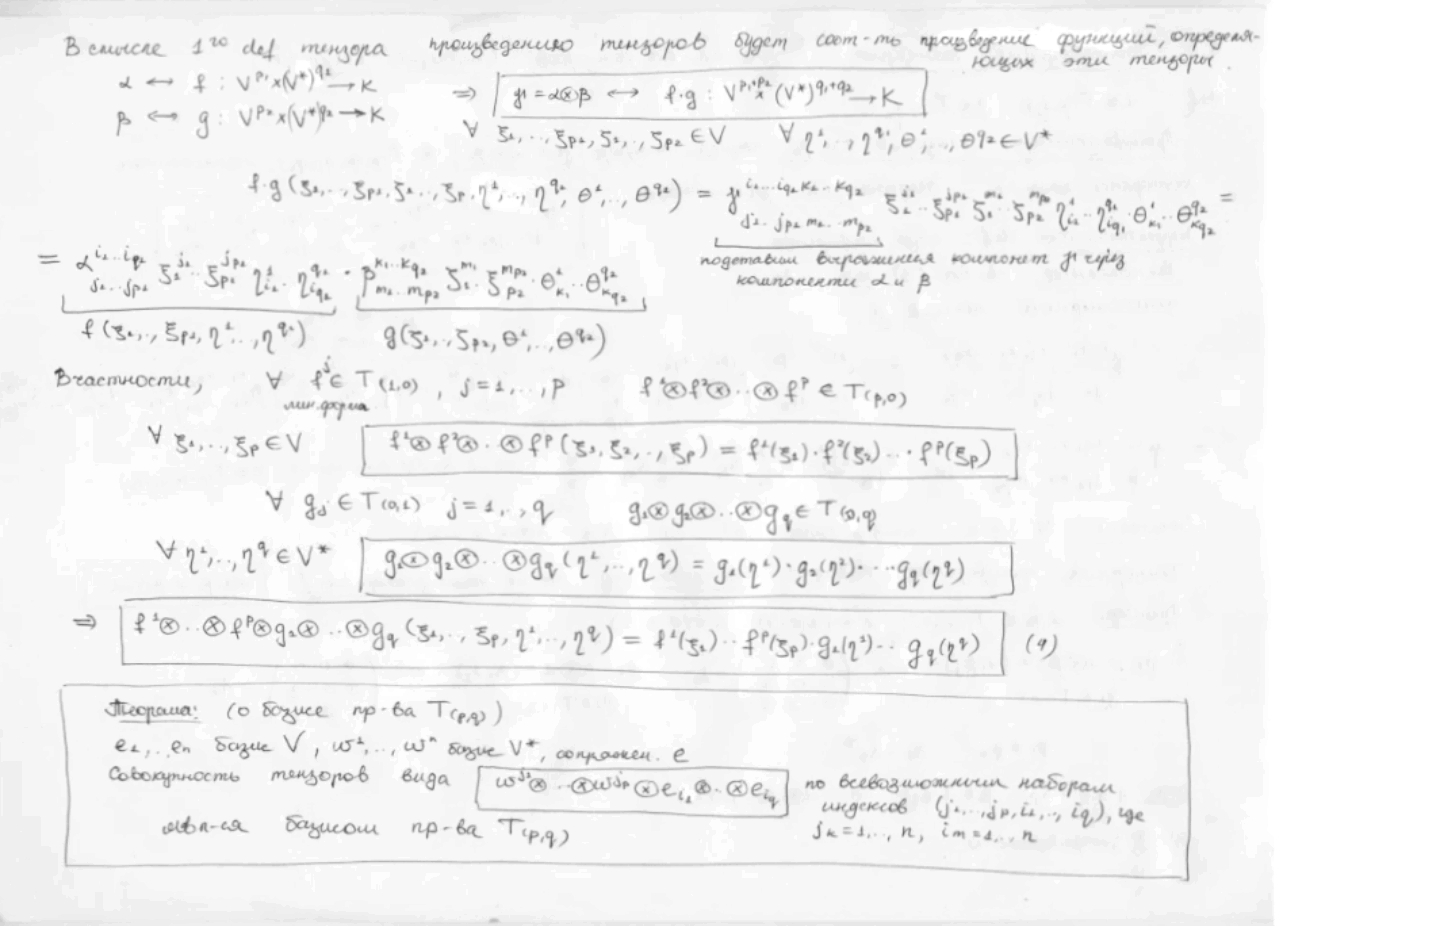 В смысле 1го def тензора произведению тензоров будет соот-ть произведение функций, определя-
ющих эти тензоры.
α ↔ f : V^{p₁}×(V*)^{q₁} → K ⇒ γ = α⊗β ↔ f·g : V^{p₁+p₂} × (V*)^{q₁+q₂} → K
β ↔ g : V^{p₂}×(V*)^{q₂} → K
∀ ξ₁,..,ξ_{p₁}, ζ₁,.,ζ_{p₂} ∈ V ∀ η¹,.,η^{q₁}, θ¹,..,θ^{q₂} ∈ V*
f·g (ξ₁,..,ξ_{p₁}, ζ₁,..,ζ_p, η¹,..,η^{q₁}, θ¹,..,θ^{q₂}) = γ^{i₁...i_{q₁} k₁..k_{q₂}}_{j₁..j_{p₁} m₁..m_{p₂}} ξ₁^{j₁}..ξ_{p₁}^{j_{p₁}} ζ₁^{m₁}..ζ_{p₂}^{m_{p₂}} η¹_{i₁}..η^{q₁}_{i_{q₁}}·θ¹_{k₁}..θ^{q₂}_{k_{q₂}} =
подставим выражения компонент γ через
компоненты α и β
= α^{i₁...i_{q₁}}_{j₁...j_{p₁}} ξ₁^{j₁}..ξ_{p₁}^{j_{p₁}} η¹_{i₁}..η^{q₁}_{i_{q₁}} · β^{k₁..k_{q₂}}_{m₁..m_{p₂}} ζ₁^{m₁}..ζ_{p₂}^{m_{p₂}}·θ¹_{k₁}..θ^{q₂}_{k_{q₂}}
f (ξ₁,..,ξ_{p₁}, η¹,..,η^{q₁}) g(ζ₁,..,ζ_{p₂}, θ¹,..,θ^{q₂})
В частности, ∀ f^j ∈ T(1,0), j=1,..,p f¹⊗f²⊗..⊗f^p ∈ T(p,0)
лин. форма
∀ ξ₁,..,ξ_p ∈ V f¹⊗f²⊗..⊗f^p (ξ₁,ξ₂,.,ξ_p) = f¹(ξ₁)·f²(ξ₂)...·f^p(ξ_p)
∀ g_j ∈ T(0,1) j=1,..,q g₁⊗g₂⊗..⊗g_q ∈ T(0,q)
∀ η¹,..,η^q ∈ V* g₁⊗g₂⊗..⊗g_q (η¹,..,η^q) = g₁(η¹)·g₂(η²)·...g_q(η^q)
⇒ f¹⊗..⊗f^p⊗g₁⊗..⊗g_q (ξ₁,..,ξ_p, η¹,..,η^q) = f¹(ξ₁)..f^p(ξ_p)·g₁(η¹)..g_q(η^q) (9)
Теорема: (о базисе пр-ва T(p,q))
e₁,..eₙ базис V, w¹,..,wⁿ базис V*, сопряжен. e
Совокупность тензоров вида w^{j₁}⊗..⊗w^{j_p}⊗e_{i₁}⊗..⊗e_{i_q} по всевозможным наборам
индексов (j₁,..,j_p, i₁,..,i_q), где
явл-ся базисом пр-ва T(p,q) j_k=1,..,n, i_m=1,..n